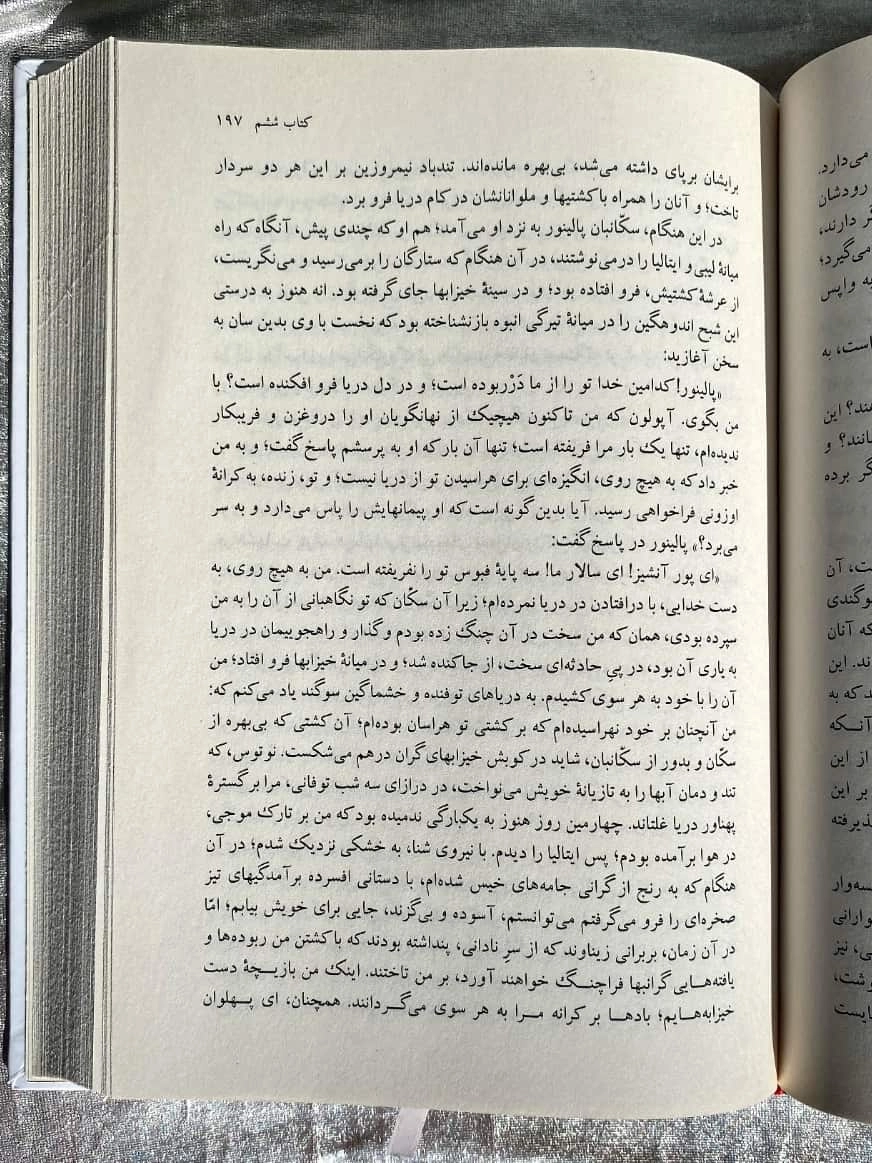 کتاب ششم ۱۹۷
برایشان برپای داشته می‌شد، بی‌بهره مانده‌اند. تندباد نیمروزین بر این هر دو سردار
تاخت؛ و آنان را همراه با کشتیها و ملوانانشان در کام دریا فرو برد.
در این هنگام، سکّانبان پالینور به نزد او می‌آمد؛ هم او که چندی پیش، آنگاه که راه
میانهٔ لیبی و ایتالیا را درمی‌نوشتند، در آن هنگام که ستارگان را برمی‌رسید و می‌نگریست،
از عرشهٔ کشتیش، فرو افتاده بود؛ و در سینهٔ خیزابها جای گرفته بود. انه هنوز به درستی
این شبح اندوهگین را در میانهٔ تیرگی انبوه بازنشناخته بود که نخست با وی بدین سان به
سخن آغازید:
«پالینور! کدامین خدا تو را از ما دَرْربوده است؛ و در دل دریا فرو افکنده است؟ با
من بگوی. آپولون که من تاکنون هیچیک از نهانگویان او را دروغزن و فریبکار
ندیده‌ام، تنها یک بار مرا فریفته است؛ تنها آن بار که او به پرسشم پاسخ گفت؛ و به من
خبر داد که به هیچ روی، انگیزه‌ای برای هراسیدن تو از دریا نیست؛ و تو، زنده، به کرانهٔ
اوزونی فراخواهی رسید. آیا بدین گونه است که او پیمانهایش را پاس می‌دارد و به سر
می‌برد؟» پالینور در پاسخ گفت:
«ای پور آنشیز! ای سالار ما! سه پایهٔ فبوس تو را نفریفته است. من به هیچ روی، به
دست خدایی، با درافتادن در دریا نمرده‌ام؛ زیرا آن سکّان که تو نگاهبانی از آن را به من
سپرده بودی، همان که من سخت در آن چنگ زده بودم و گذار و راهجوییمان در دریا
به یاری آن بود، در پیِ حادثه‌ای سخت، از جا کنده شد؛ و در میانهٔ خیزابها فرو افتاد؛ من
آن را با خود به هر سوی کشیدم. به دریاهای توفنده و خشماگین سوگند یاد می‌کنم که:
من آنچنان بر خود نهراسیده‌ام که بر کشتی تو هراسان بوده‌ام؛ آن کشتی که بی‌بهره از
سکّان و بدور از سکّانبان، شاید در کوبش خیزابهای گران درهم می‌شکست. نوتوس، که
تند و دمان آبها را به تازیانهٔ خویش می‌نواخت، در درازای سه شب توفانی، مرا بر گسترهٔ
پهناور دریا غلتاند. چهارمین روز هنوز به یکبارگی ندمیده بود که من بر تارک موجی،
در هوا برآمده بودم؛ پس ایتالیا را دیدم. با نیروی شنا، به خشکی نزدیک شدم؛ در آن
هنگام که به رنج از گرانی جامه‌های خیس شده‌ام، با دستانی افسرده برآمدگیهای تیز
صخره‌ای را فرو می‌گرفتم می‌توانستم، آسوده و بی‌گزند، جایی برای خویش بیابم؛ امّا
در آن زمان، بربرانی زیناوند که از سرِ نادانی، پنداشته بودند که با کشتن من ربوده‌ها و
یافته‌هایی گرانبها فراچنگ خواهند آورد، بر من تاختند. اینک من بازیچهٔ دست
خیزابه‌هایم؛ بادها بر کرانه مرا به هر سوی می‌گردانند. همچنان، ای پهلوان
می‌دارد.
رودشان
دارند،
می‌گیرد؛
به واپس
است، به
این
مانند؟ و
گر برده
آن
سوگندی
که آنان
این
که به
آنکه
از این
بر این
ذیرفته
سه‌وار
نیز